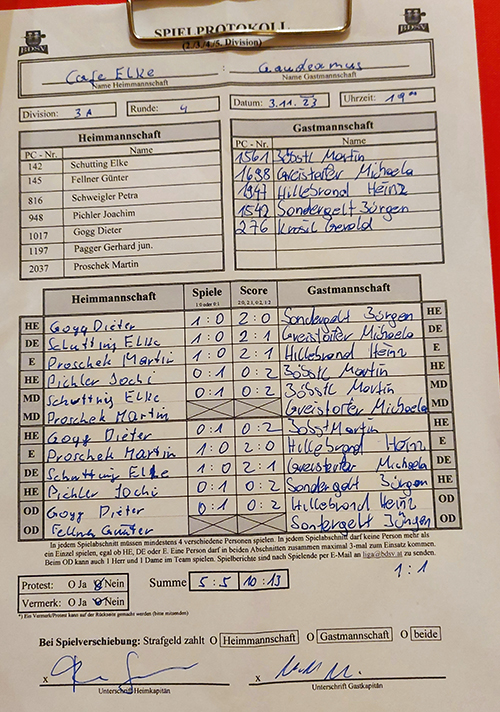 SPIELPROTOKOLL
(2./3./4./5. Division)
BDSV BDSV
Cafe Elke : Gaudeamus
Name Heimmannschaft Name Gastmannschaft
Division: 3A Runde: 4 Datum: 3.11.23 Uhrzeit: 19°°
Heimmannschaft Gastmannschaft
PC - Nr. Name PC - Nr. Name
142 Schutting Elke 1561 Jöbstl Martin
145 Fellner Günter 1698 Greistorfer Michaela
816 Schweigler Petra 1947 Hillebrand Heinz
948 Pichler Joachim 1542 Sondergelt Jürgen
1017 Gogg Dieter 276 Gerald
1197 Pagger Gerhard jun.
2037 Proschek Martin
Heimmannschaft Spiele Score Gastmannschaft
1:0 oder 0:1 2:0, 2:1, 0:2, 1:2
HE Gogg Dieter 1:0 2:0 Sondergelt Jürgen HE
DE Schutting Elke 1:0 2:1 Greistorfer Michaela DE
E Proschek Martin 1:0 2:1 Hillebrand Heinz E
HE Pichler Jochi 0:1 0:2 Jöbstl Martin HE
MD Schutting Elke 0:1 0:2 Jöbstl Martin MD
MD Proschek Martin Greistorfer Michaela MD
HE Gogg Dieter 0:1 0:2 Jöbstl Martin HE
E Proschek Martin 1:0 2:0 Hillebrand Heinz E
DE Schutting Elke 1:0 2:1 Greistorfer Michaela DE
HE Pichler Jochi 0:1 0:2 Sondergelt Jürgen HE
OD Gogg Dieter 0:1 0:2 Hillebrand Heinz OD
OD Fellner Günter Sondergelt Jürgen OD
In jedem Spielabschnitt müssen mindestens 4 verschiedene Personen spielen. In jedem Spielabschnitt darf keine Person mehr als
ein Einzel spielen, egal ob HE, DE oder E. Eine Person darf in beiden Abschnitten zusammen maximal 3-mal zum Einsatz kommen.
Beim OD kann auch 1 Herr und 1 Dame im Team spielen. Spielberichte sind nach Spielende per E-Mail an liga@bdsv.at zu senden.
1:1
Protest: O Ja O Nein Summe 5:5 10:13
Vermerk: O Ja O Nein
*) Ein Vermerk/Protest kann auf der Rückseite gemacht werden (bitte ankreuzen)
Bei Spielverschiebung: Strafgeld zahlt O Heimmannschaft O Gastmannschaft O beide
x x
Unterschrift Heimkapitän Unterschrift Gastkapitän